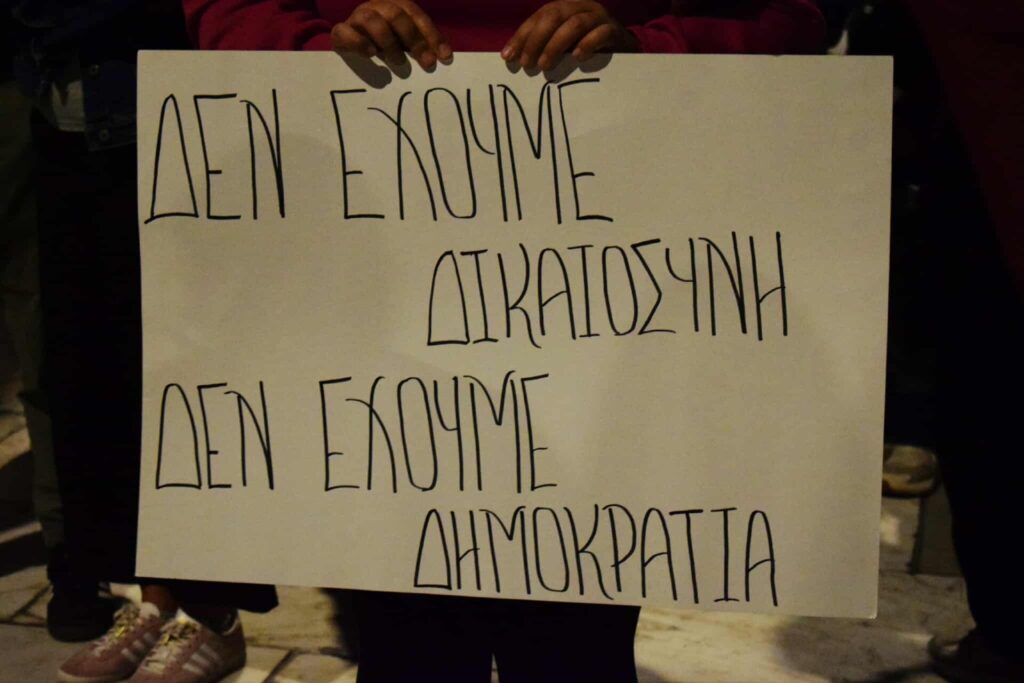 ΔΕΝ ΕΧΟΥΜΕ
ΔΙΚΑΙΟΣΥΝΗ
ΔΕΝ ΕΧΟΥΜΕ
ΔΗΜΟΚΡΑΤΙΑ